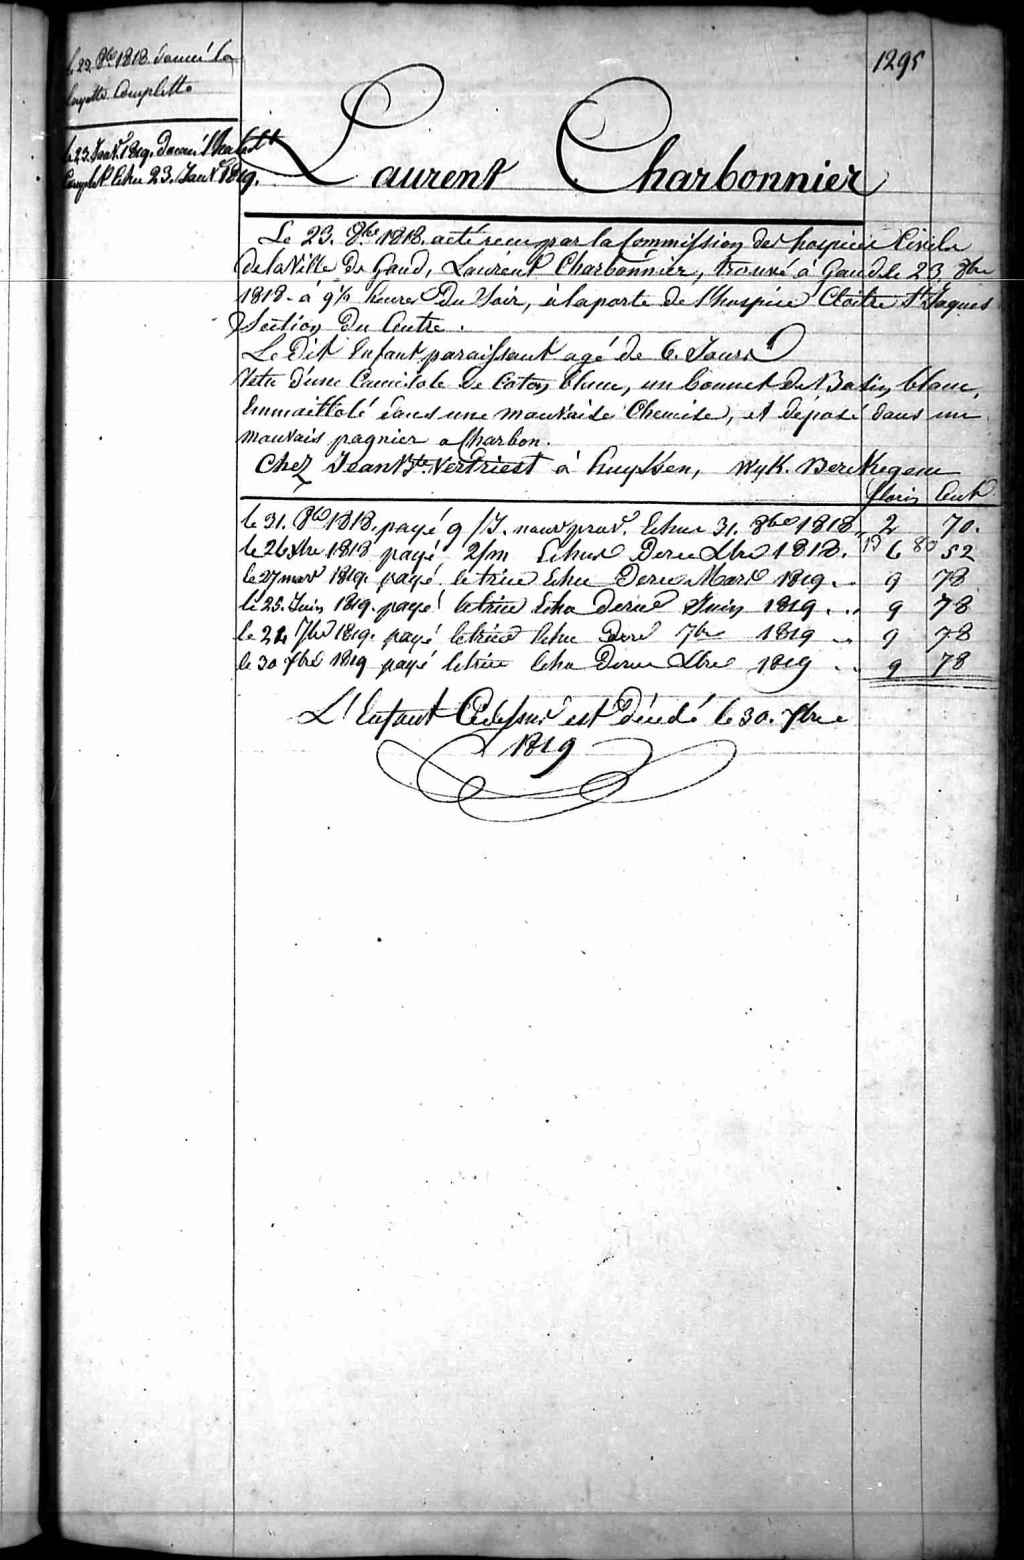 1295
le 22. 8bre 1818 donné la
layette Complette
le 23. Janvr 1819. donné
Complet Echu 23. Janvr 1819.
Laurent Charbonnier
Le 23. 8bre 1818. a été recu par la Commission des hospices Civils
de la Ville de Gand, Laurent Charbonnier, trouvé à Gand le 23 8bre
1818 - à 9½ heures Du Soir, à la porte de l'hospice Cloître St Jaques
Section Du Centre.
Le Dit Enfant paraissant agé de 6. Jours
Vetu d'une Camisole de Coton blanc, un bonnet de Basin blanc,
Emmaillolé dans une mauvaise Chemise, et déposé dans un
mauvais pagnier a Charbon.
Chez Jean Bte Vertriest à huyssen, Wyk. Berekegem
florin Cent
le 31. 8bre 1818. payé 9/J. Echue 31. 8bre 1818. 2 70.
le 26 Xbre 1818 payé 2/m Echus Dernr Xbre 1818. 13 6 80 52
le 27 mars 1819. payé le trice Echu Dernr Mars 1819. .. 9 78
le 25. Juin 1819. payé le trice Echu dernr Juin 1819. .. 9 78
le 24 7bre 1819. payé le trice Echu Dernr 7bre 1819 .. 9 78
le 30 Xbre 1819 payé le trice Echu Dernr Xbre 1819 .. 9 78
L'Enfant Cidessus est Décédé le 30. Xbre
1819